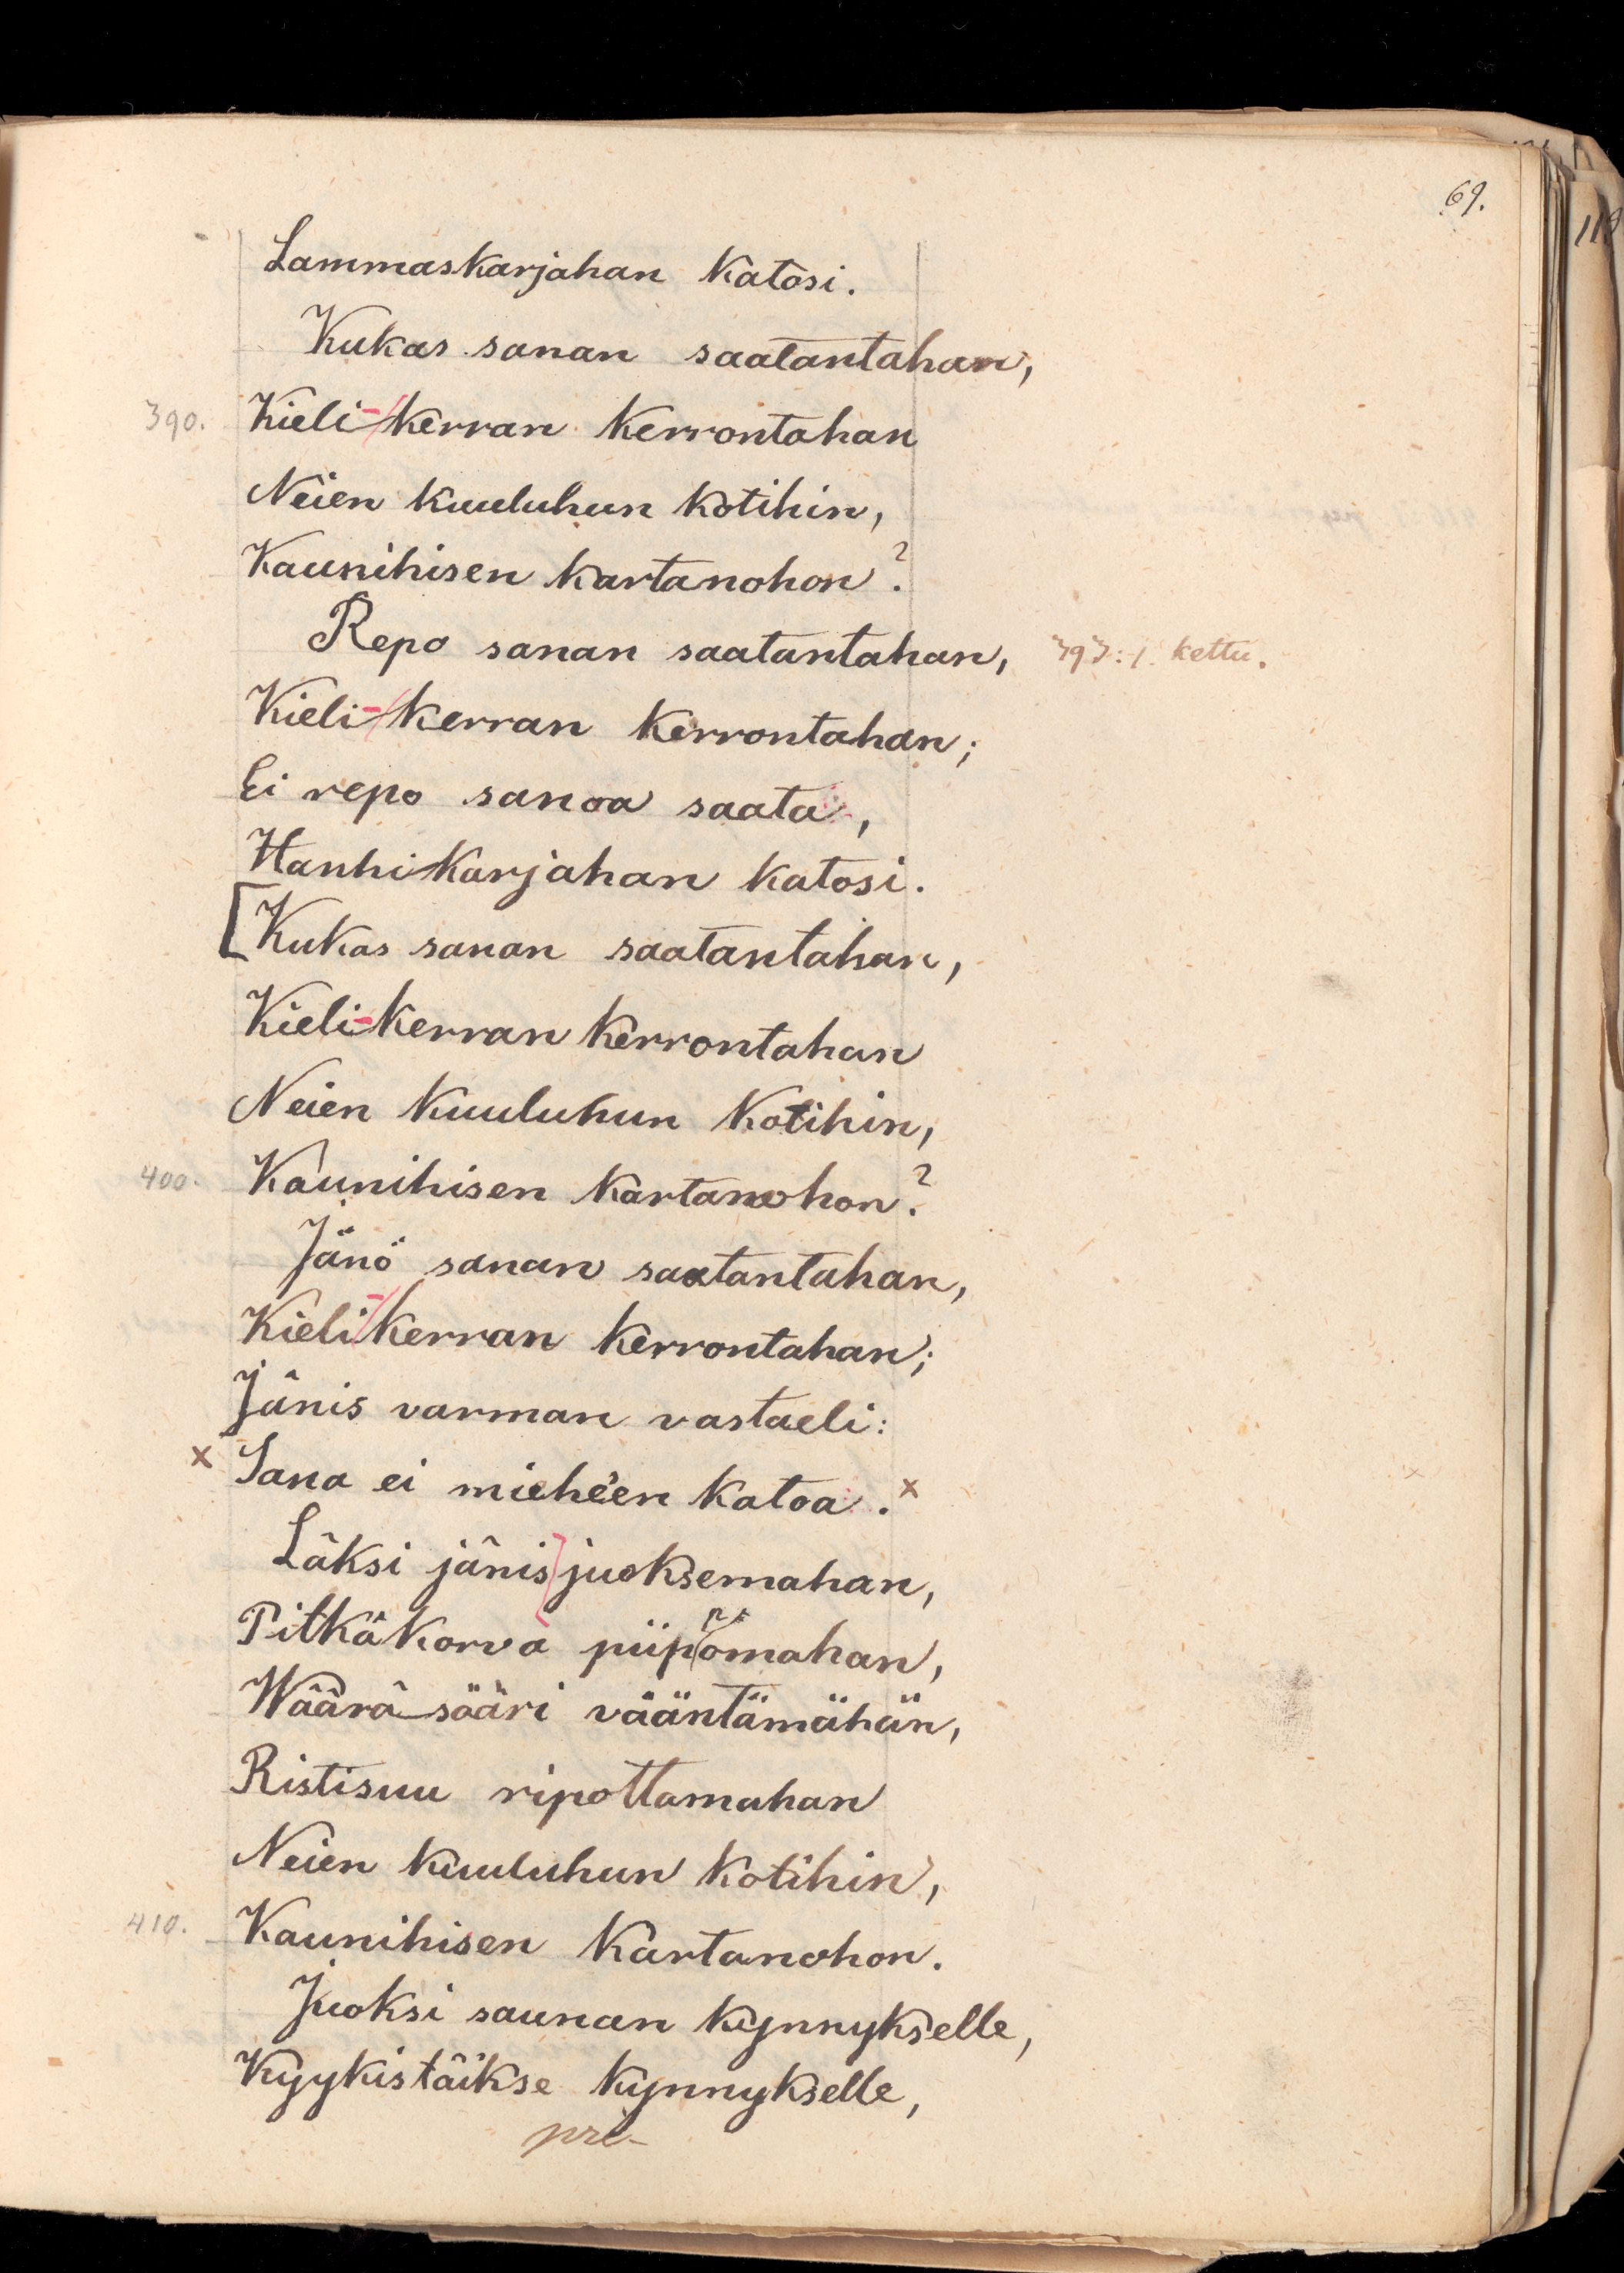 69.
118
Lammaskarjahan katosi.
Kukas sanan saatantahan,
390. Kieli-kerran kerrontahan
Neien kuuluhun kotihin,
Kaunihisen kartanohon?
Repo sanan saatantahan, 393: 1. kettu.
Kieli-kerran kerrontahan;
Ei repo sanoa saata,
Hanhikarjahan katosi.
[Kukas sanan saatantahan,
Kieli-kerran kerrontahan
Neien kuuluhun kotihin,
400. Kaunihisen kartanohon?
Jänö sanan saatantahan,
Kieli-kerran kerrontahan;
Jänis varman vastaeli:
x Sana ei mieheen katoa. x
Läksi jänis juoksemahan,
Pitkäkorva piipomahan,
Wäärä-sääri vääntämähän,
Ristisuu ripottamahan
Neien kuuluhun kotihin,
410. Kaunihisen kartanohon.
Juoksi saunan kynnykselle,
Kyykistäikse kynnykselle,